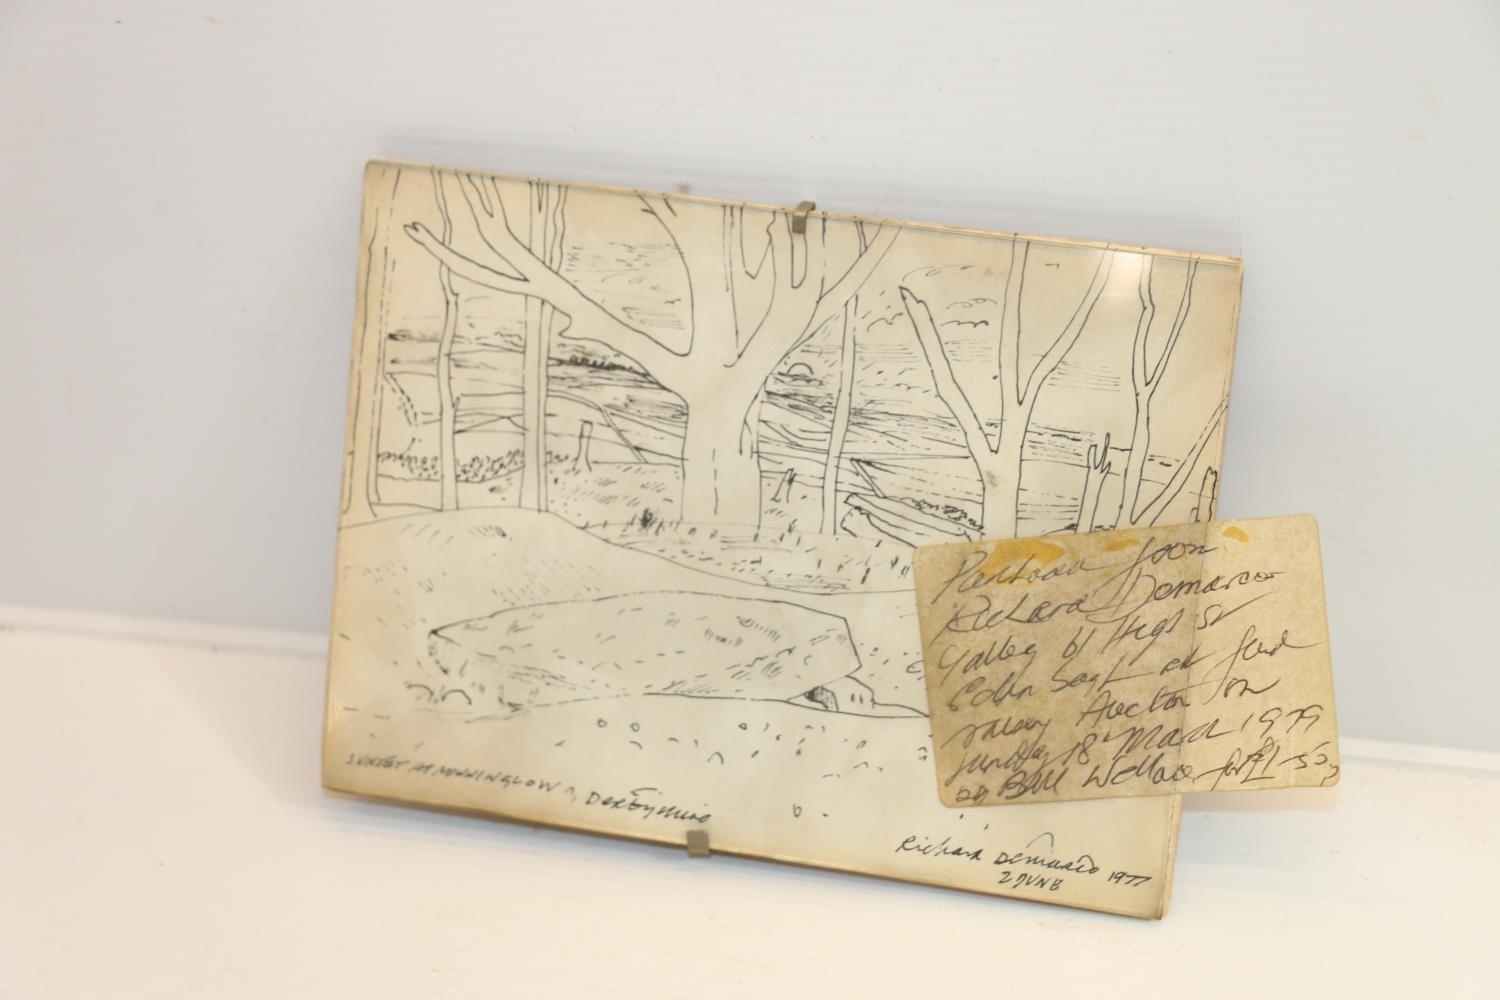 SUNSET AT MINNINGLOW, DERBYSHIRE
Richard Demarco 1977
2 JUNE
Purchased from
Richard Demarco
Galley 61 High St
Edin Sagt at fund
raisey Auction on
Sunday 18th March 1979
by Bill Wallace for £